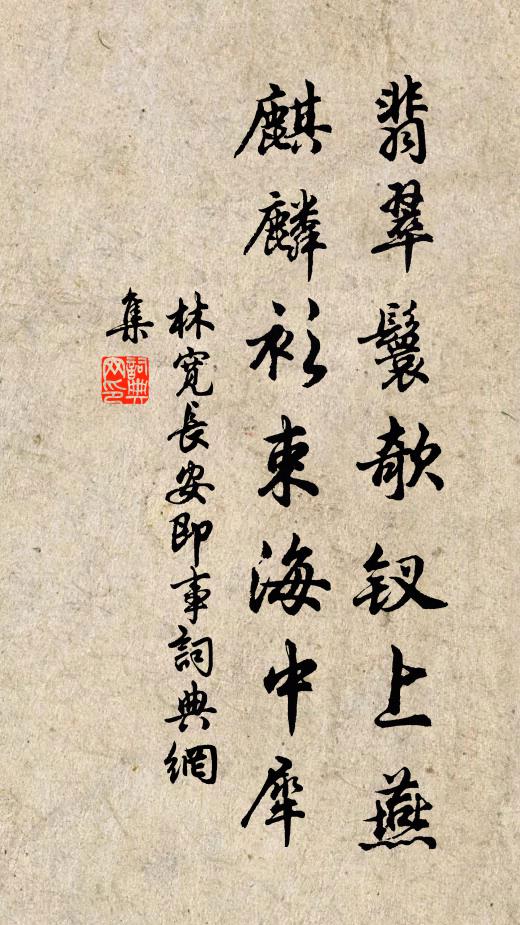 翡翠鬟欹钗上燕
麒麟衫束海中犀
林寬長安即事詞典網
集
詞典
网印